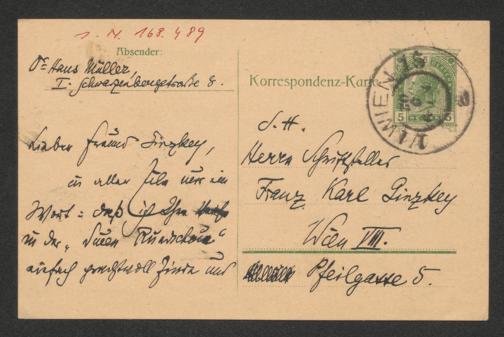 s. N. 168.489
Absender:
Dr Hans Müller,
I. Schwarzenbergstraße 8.
Lieber Freund Ginzkey,
in aller Eile nur ein
Wort: daß ich Ihre
in der „Neuen Rundschau“
einfach prachtvoll finde und
Korrespondenz-Karte
WIEN
5 5
S. H.
Herrn Schriftsteller
Franz Karl Ginzkey
Wien VIII.
Pfeilgasse 5.